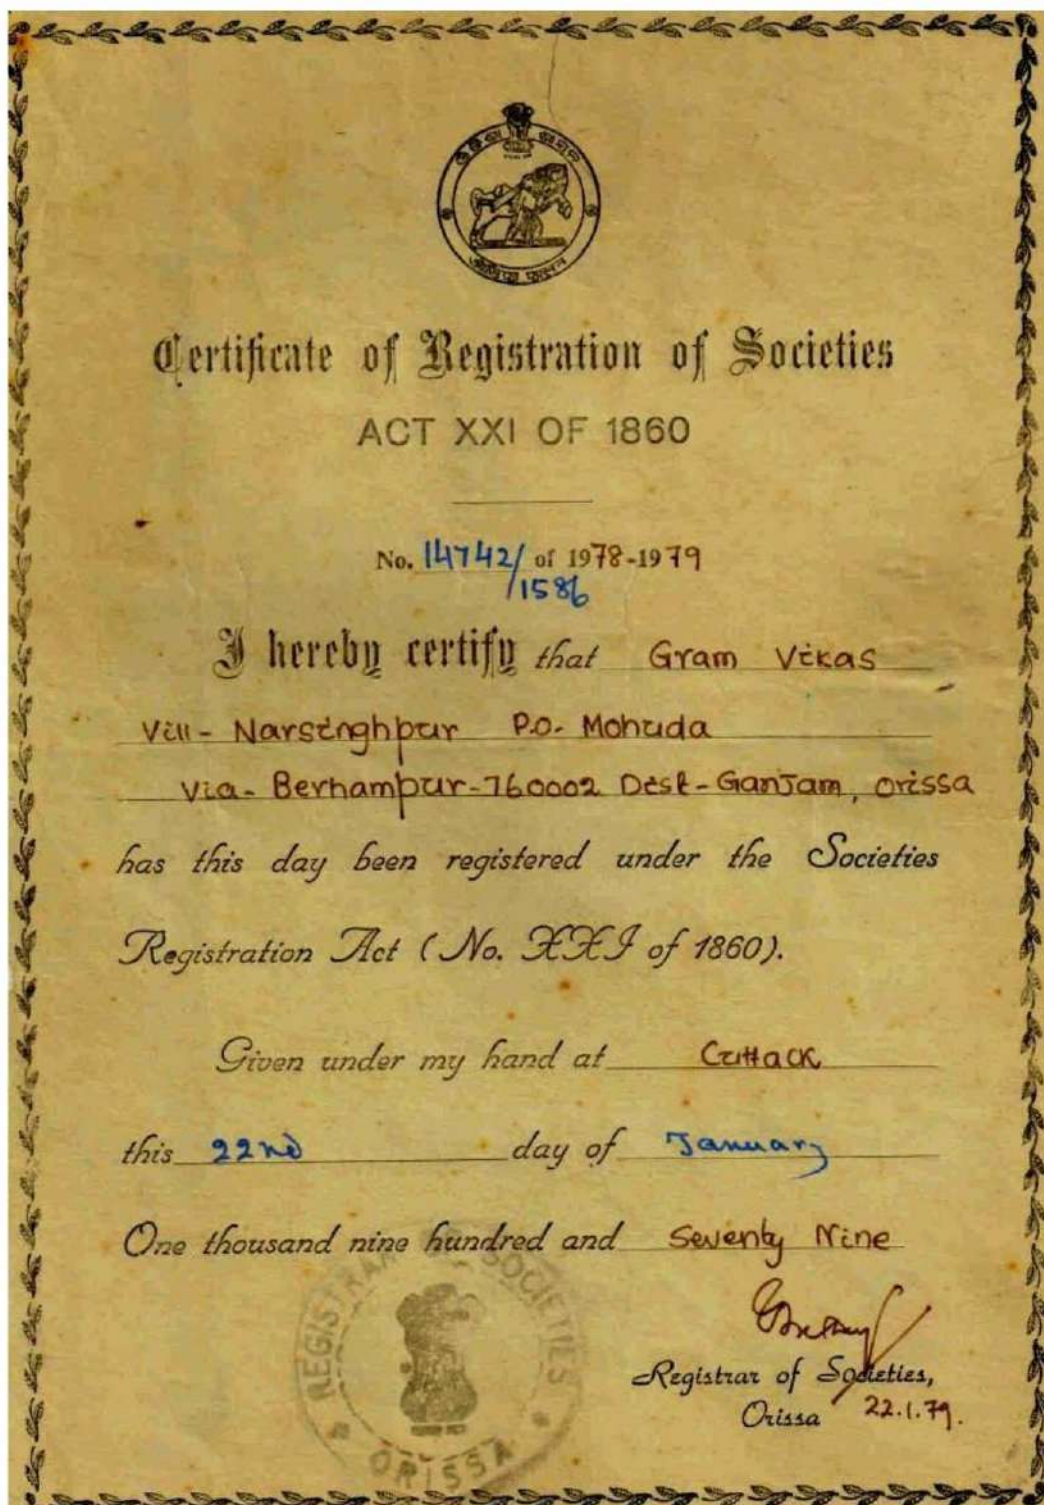 Certificate of Registration of Societies
ACT XXI OF 1860
No. 14742/ of 1978-1979
1586
I hereby certify that Gram Vikas
Vill- Narsinghpur P.O- Mohuda
Via- Berhampur-760002 Dist- Ganjam, Orissa
has this day been registered under the Societies
Registration Act (No. XXI of 1860).
Given under my hand at Cuttack
this 22nd day of January
One thousand nine hundred and Seventy Nine
REGISTRAR SOCIETIES
ORISSA
Registrar of Societies,
Orissa 22.1.79.